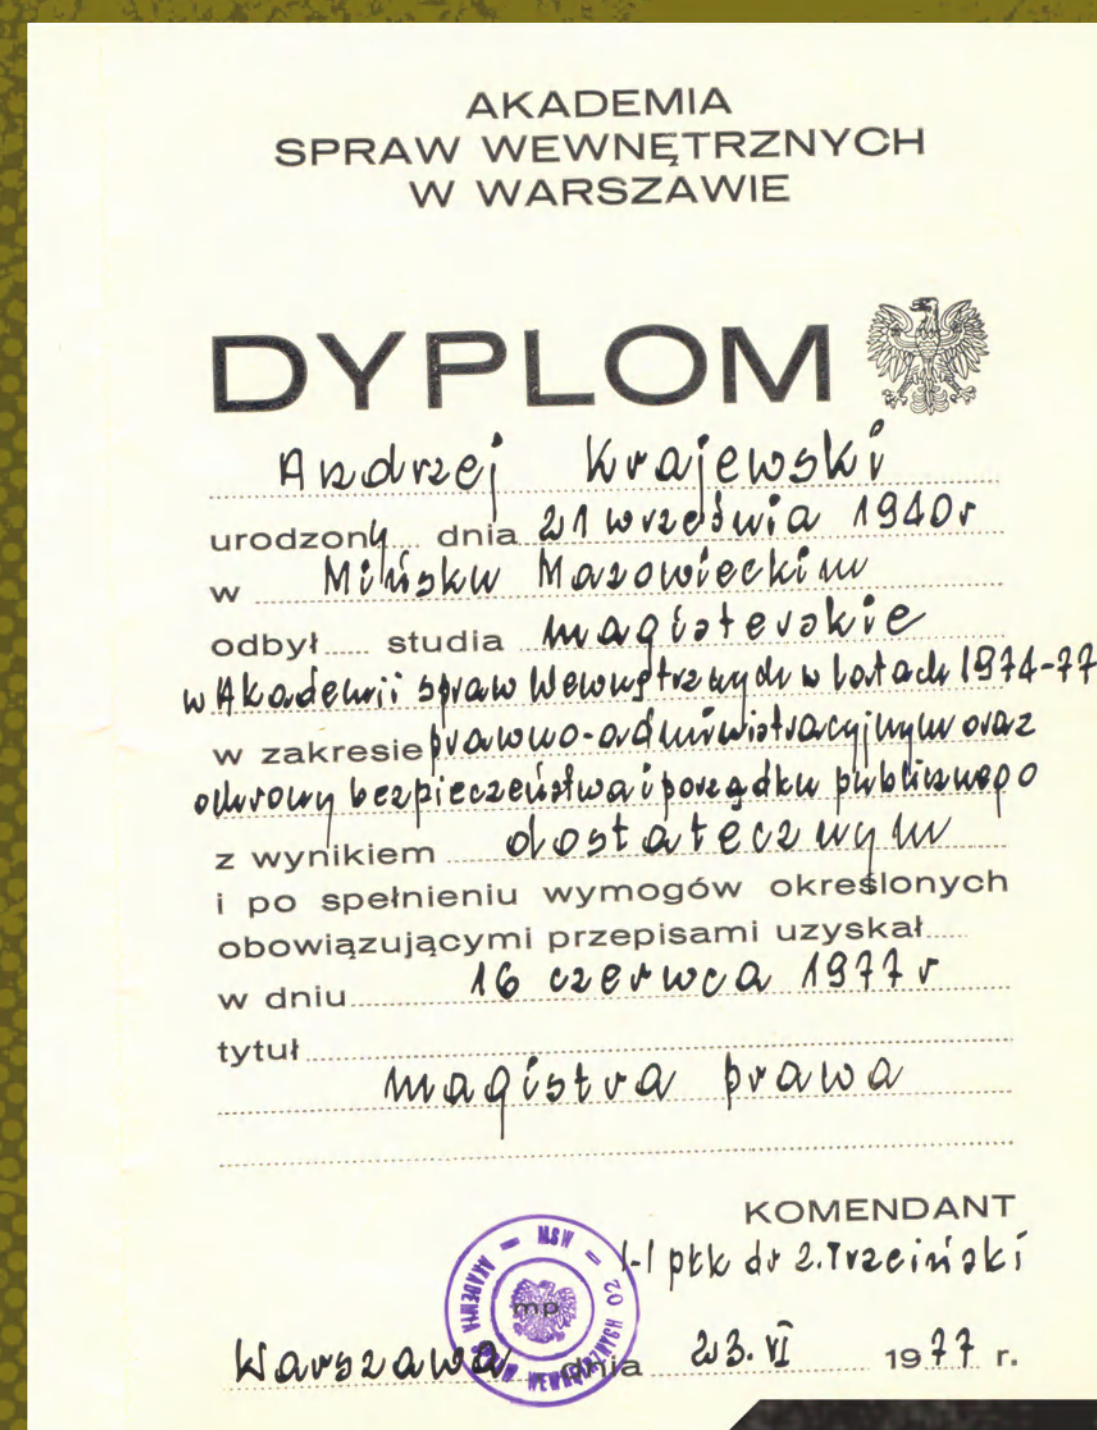 AKADEMIA
SPRAW WEWNĘTRZNYCH
W WARSZAWIE
DYPLOM
Andrzej Krajewski
urodzony dnia 21 września 1940 r
w Mińsku Mazowieckim
odbył studia magisterskie
w Akademii Spraw Wewnętrznych w latach 1974-77
w zakresie prawno-administracyjnym oraz
ochrony bezpieczeństwa i porządku publicznego
z wynikiem dostatecznym
i po spełnieniu wymogów określonych
obowiązującymi przepisami uzyskał
w dniu 16 czerwca 1977 r
tytuł
magistra prawa
KOMENDANT
/-/ płk dr Z. Trzciński
MSW – AKADEMIA SPRAW WEWNĘTRZNYCH 02
mp
Warszawa dnia 23. VI 1977 r.